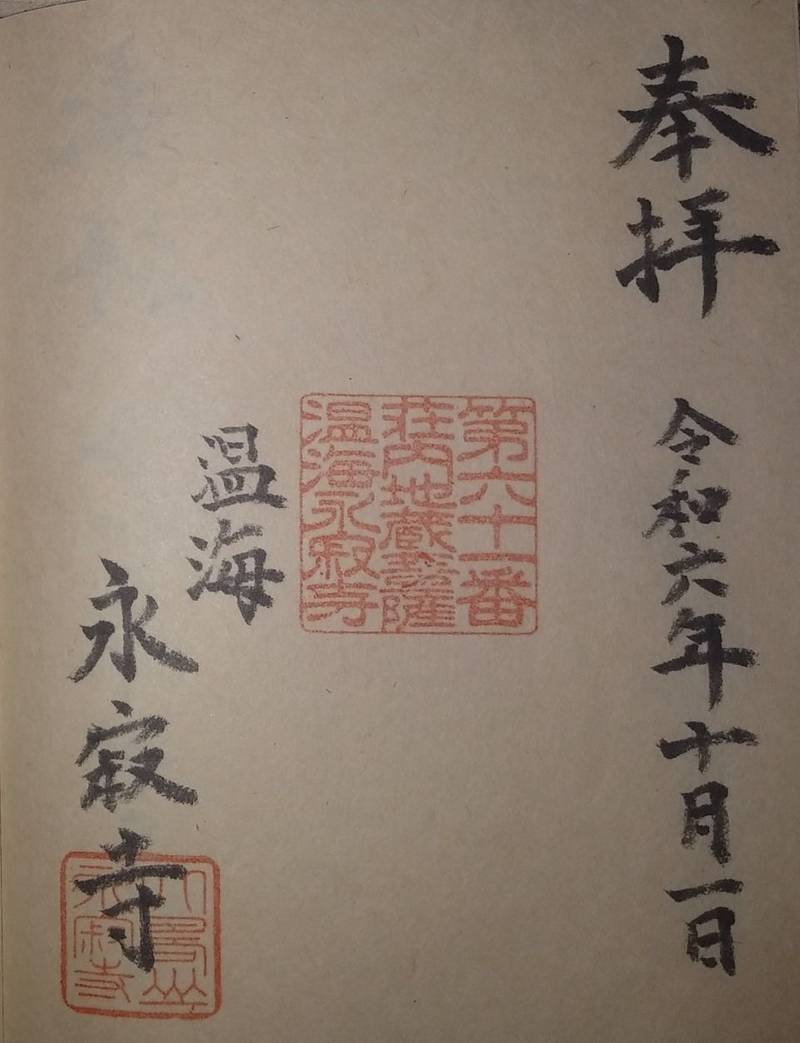 奉拝
令和六年十月一日
第六十一番
荘内地蔵菩薩
温海永寂寺
温海
永寂寺
永寂寺